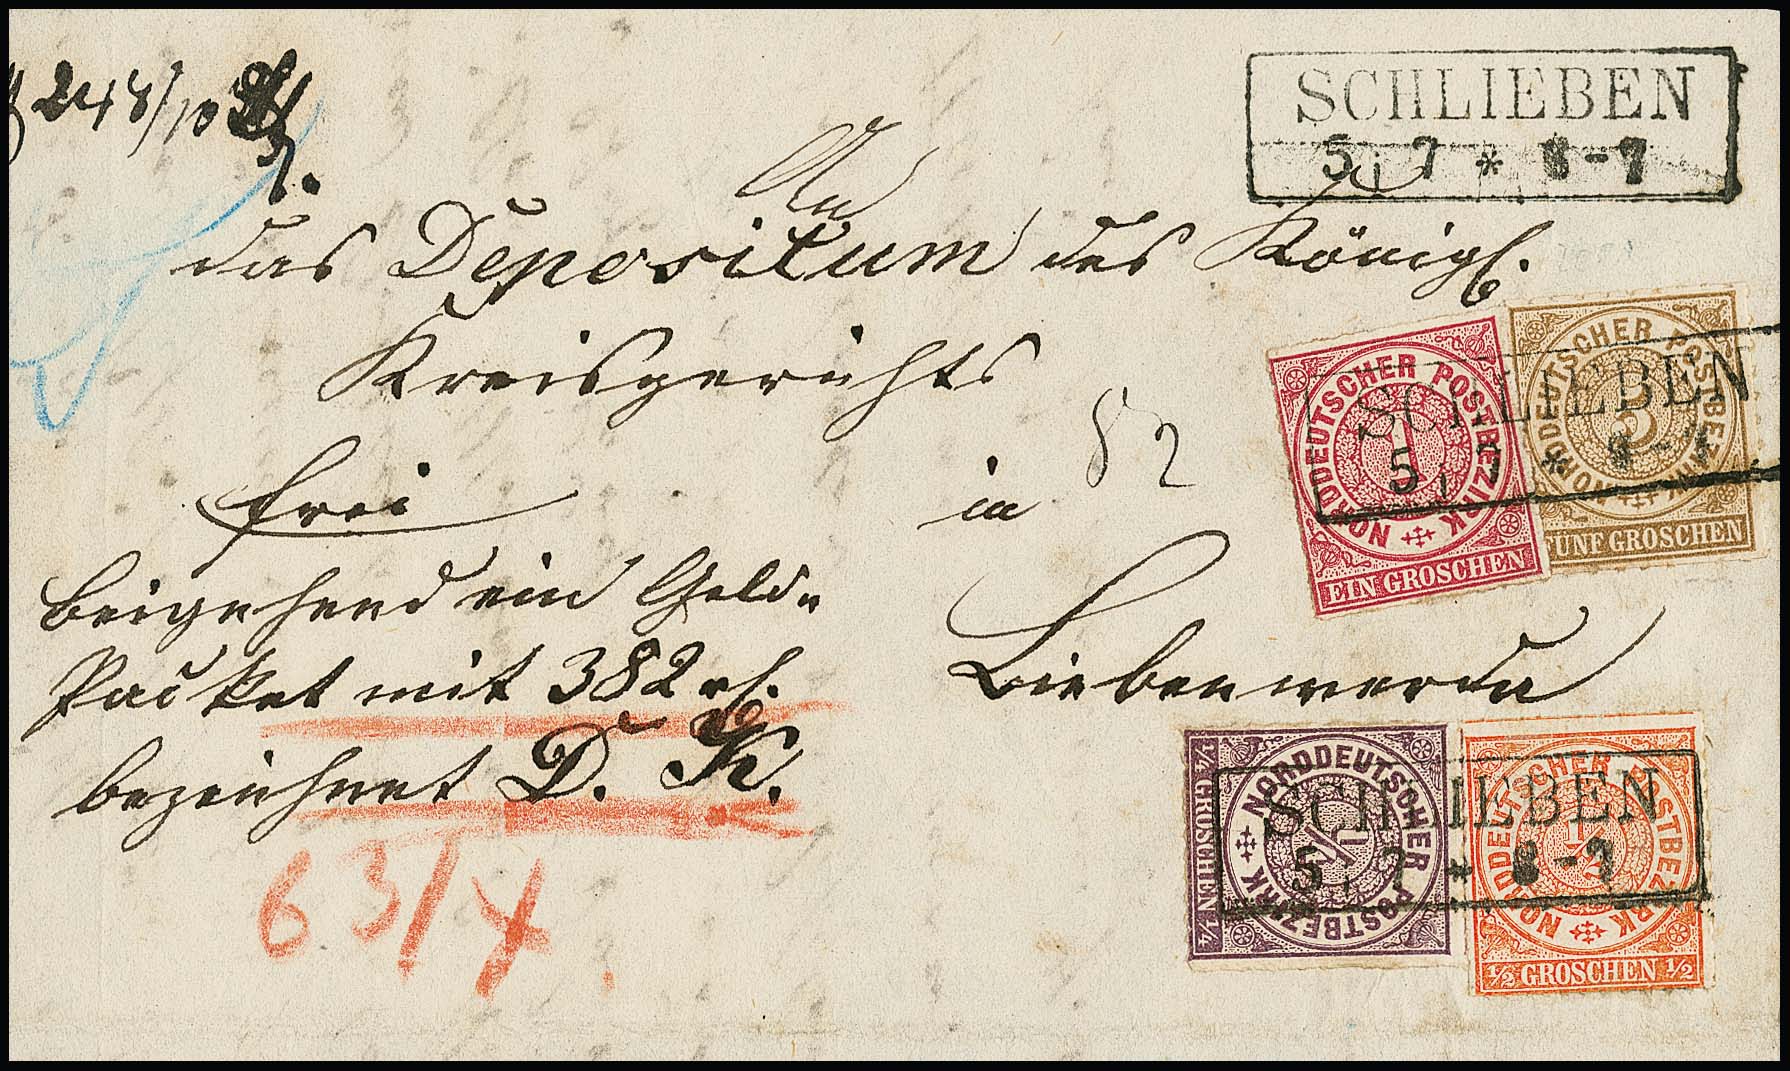 248/10
SCHLIEBEN
5 7 * 8-7
An
das Depositum des Königl.
Kreisgerichts
frei in
82
Beigehend ein Geld-
Packet mit 382 rh.
bezeichnet D. K.
Liebenwerda
63/4
NORDDEUTSCHER POSTBEZIRK
1
EIN GROSCHEN
NORDDEUTSCHER POSTBEZIRK
5
FÜNF GROSCHEN
SCHLIEBEN
5 7 * 8-7
1/4 GROSCHEN 1/4
NORDDEUTSCHER POSTBEZIRK
NORDDEUTSCHER POSTBEZIRK
1/2
1/2 GROSCHEN 1/2
SCHLIEBEN
5 7 * 8-7